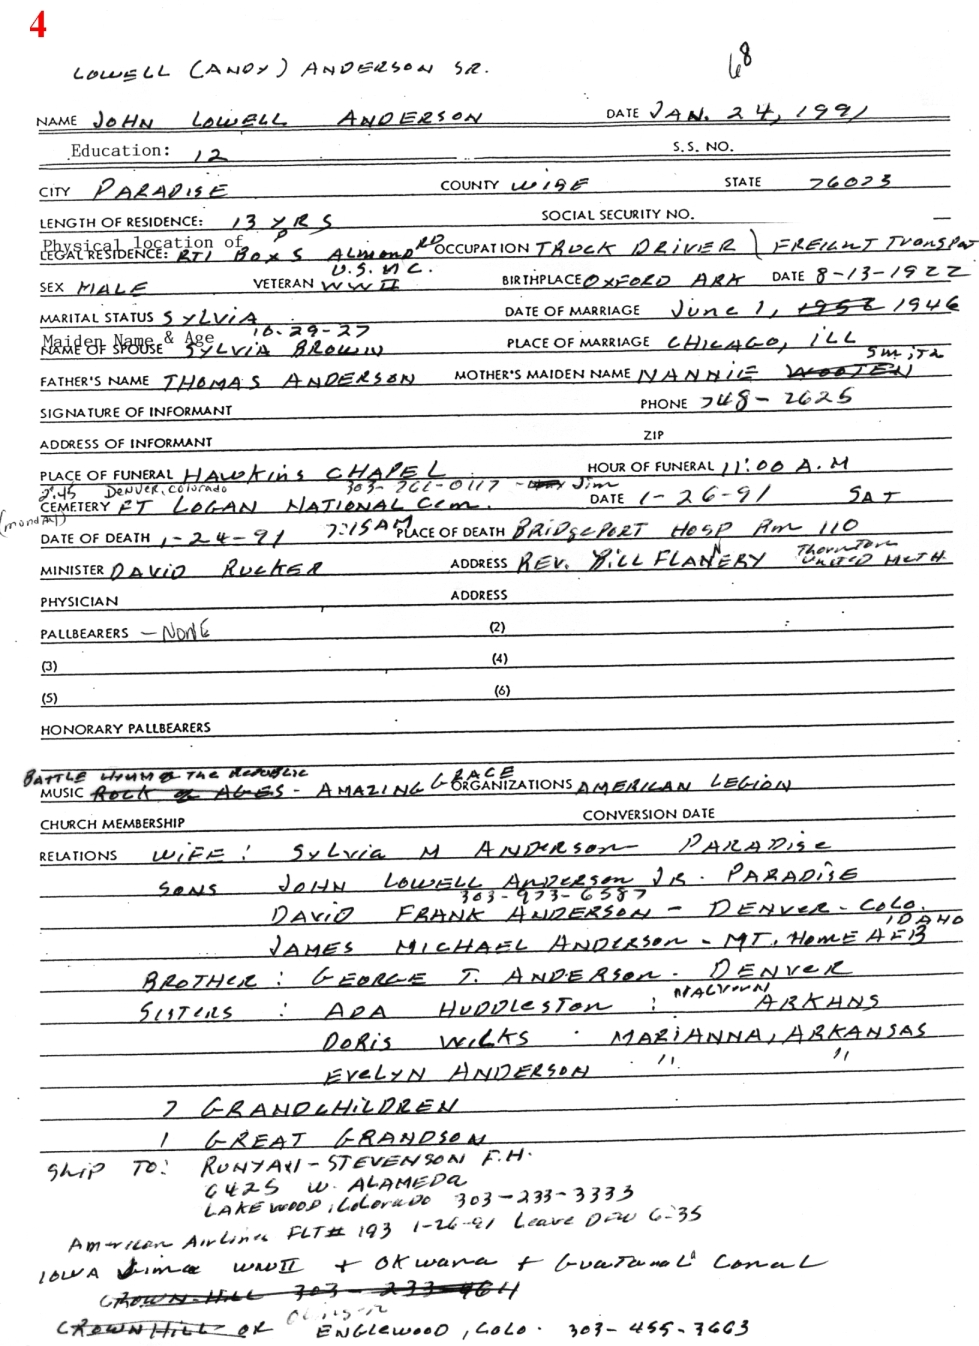 4
LOWELL (ANDY) ANDERSON SR.
68
NAME JOHN LOWELL ANDERSON DATE JAN. 24, 1991
Education: 12 S.S. NO.
CITY PARADISE COUNTY WISE STATE 76023
LENGTH OF RESIDENCE: 13 YRS SOCIAL SECURITY NO.
Physical location of
LEGAL RESIDENCE: RT1 BOX 5 ALMOND RD OCCUPATION TRUCK DRIVER ) FREIGHT TRANSPORT
U.S. M.C.
SEX MALE VETERAN WW II BIRTHPLACE OXFORD ARK DATE 8-13-1922
MARITAL STATUS SYLVIA DATE OF MARRIAGE June 1, 1952 1946
Maiden Name & Age 10-29-27
NAME OF SPOUSE SYLVIA BROWN PLACE OF MARRIAGE CHICAGO, ILL
Smith
FATHER'S NAME THOMAS ANDERSON MOTHER'S MAIDEN NAME NANNIE WOOTEN
SIGNATURE OF INFORMANT PHONE 748-2625
ADDRESS OF INFORMANT ZIP
PLACE OF FUNERAL HAWKINS CHAPEL HOUR OF FUNERAL 11:00 A.M
2:45 DENVER, COLORADO 303-761-0117 - Jim
CEMETERY FT LOGAN NATIONAL Cem. DATE 1-26-91 SAT
(monday)
DATE OF DEATH 1-24-91 7:15 AM PLACE OF DEATH BRIDGEPORT HOSP RM 110
MINISTER DAVID RUCKER ADDRESS REV. BILL FLANNERY Thornton UNITED METH
PHYSICIAN ADDRESS
PALLBEARERS - NONE (2)
(3) (4)
(5) (6)
HONORARY PALLBEARERS
BATTLE HYMN OF THE REPUBLIC
MUSIC ROCK OF AGES - AMAZING GRACE ORGANIZATIONS AMERICAN LEGION
CHURCH MEMBERSHIP CONVERSION DATE
RELATIONS WIFE: SYLVIA M ANDERSON PARADISE
SONS JOHN LOWELL ANDERSON JR. PARADISE
303-973-6587
DAVID FRANK ANDERSON - DENVER - COLO.
IDAHO
JAMES MICHAEL ANDERSON - MT. HOME AFB
BROTHER: GEORGE T. ANDERSON - DENVER
SISTERS : ADA HUDDLESTON : MALVERN ARKANS
DORIS WILKS - MARIANNA, ARKANSAS
EVELYN ANDERSON " "
7 GRANDCHILDREN
1 GREAT GRANDSON
SHIP TO: RUNYAN-STEVENSON F.H.
6425 W. ALAMEDA
LAKEWOOD, COLORADO 303-233-3333
American Airlines FLT# 193 1-26-91 Leave DFW 6:35
IOWA Jima WWII + OKwana + Guatanal Canal
CROWN HILL 303-233-4611
CROWN HILL OR ENGLEWOOD, COLO. 303-455-3663